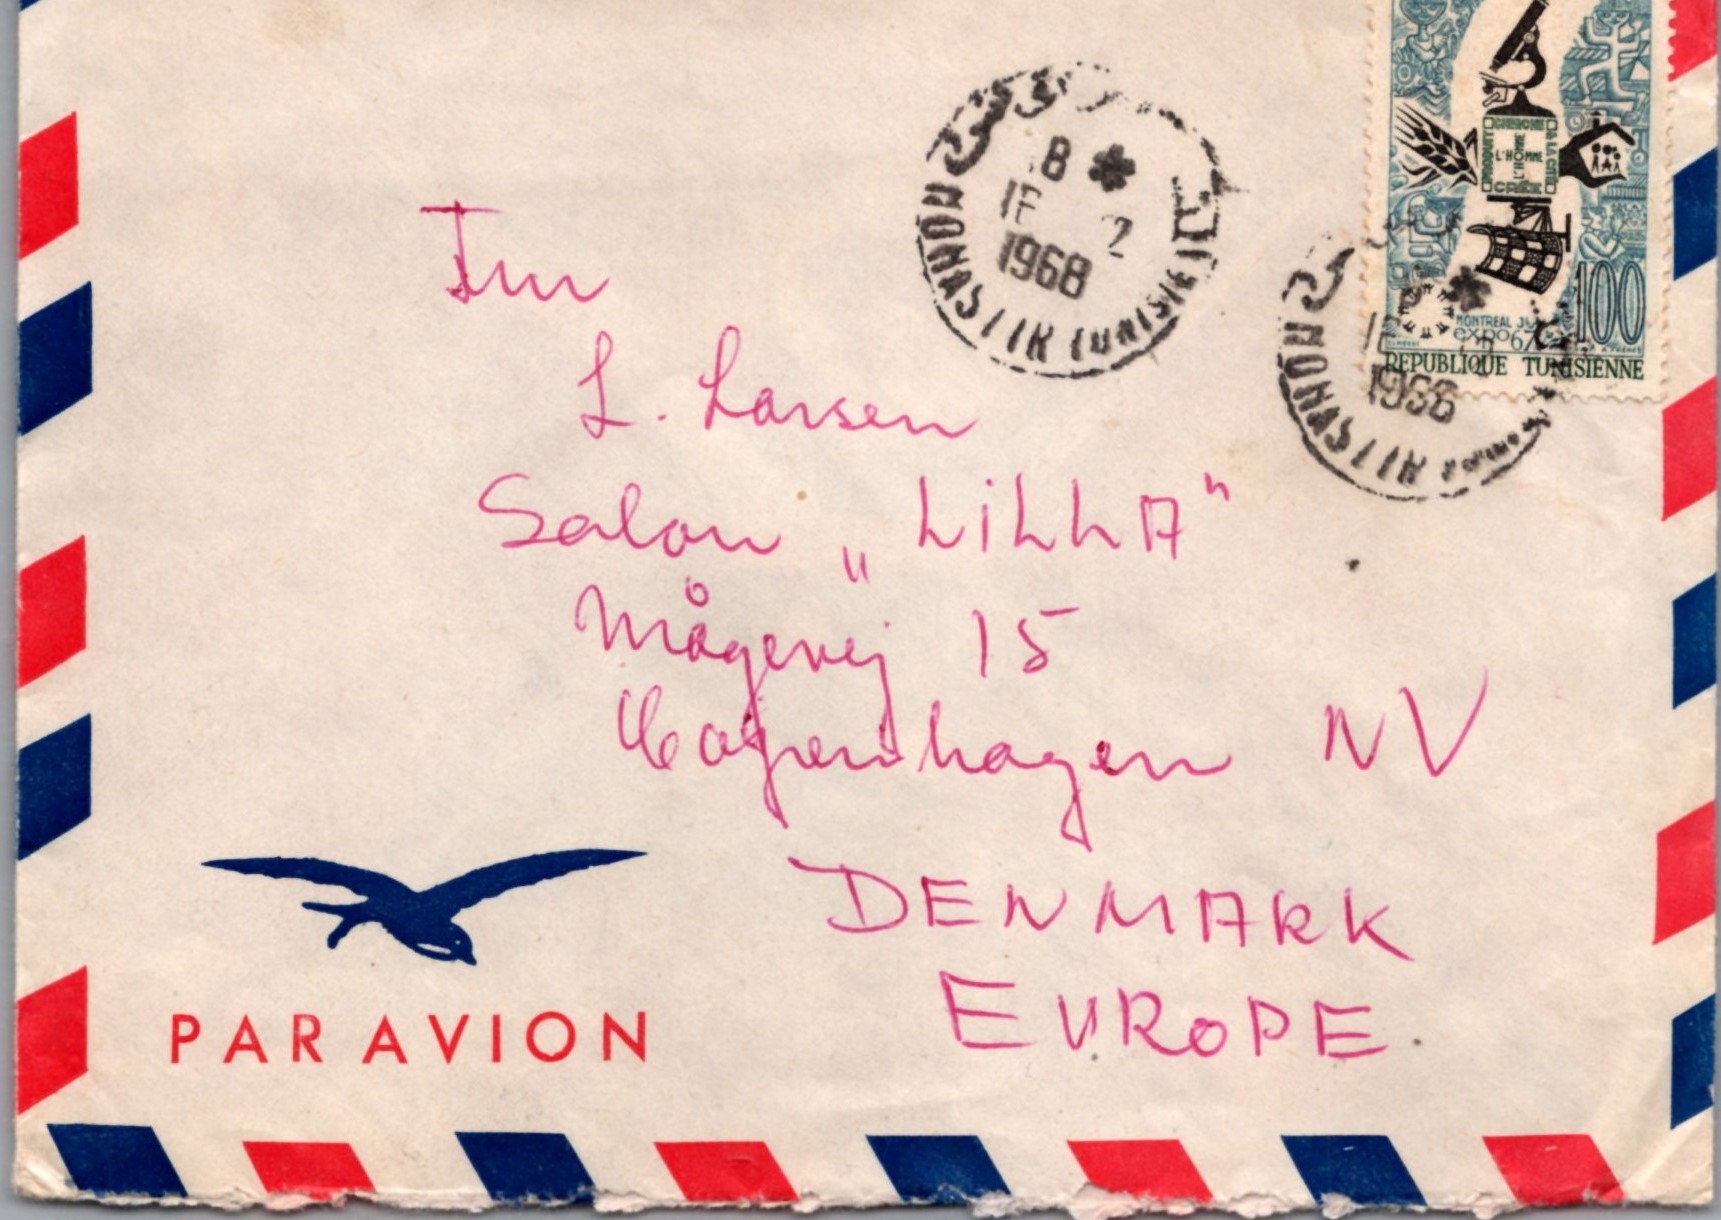 8
17 2
1968
MONASTIR TUNISIE
L'HOMME
CREE
MONTREAL
expo 67
100
REPUBLIQUE TUNISIENNE
1968
MONASTIR
L. Larsen
Salon „LiLLA"
Mågevej 15
Copenhagen NV
DENMARK
EUROPE.
PAR AVION